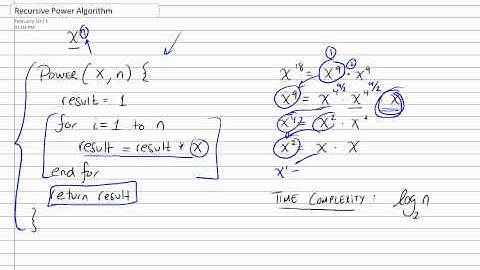 Recursive Power Algorithm
x^n
Power(x,n) {
result = 1
for i=1 to n
result = result * x
end for
return result
}
x^18 = x^9 · x^9
x^9 = x^4 · x^4 · x
x^4 = x^2 · x^2
x^2 = x · x
x^1 =
TIME COMPLEXITY: log_2 n